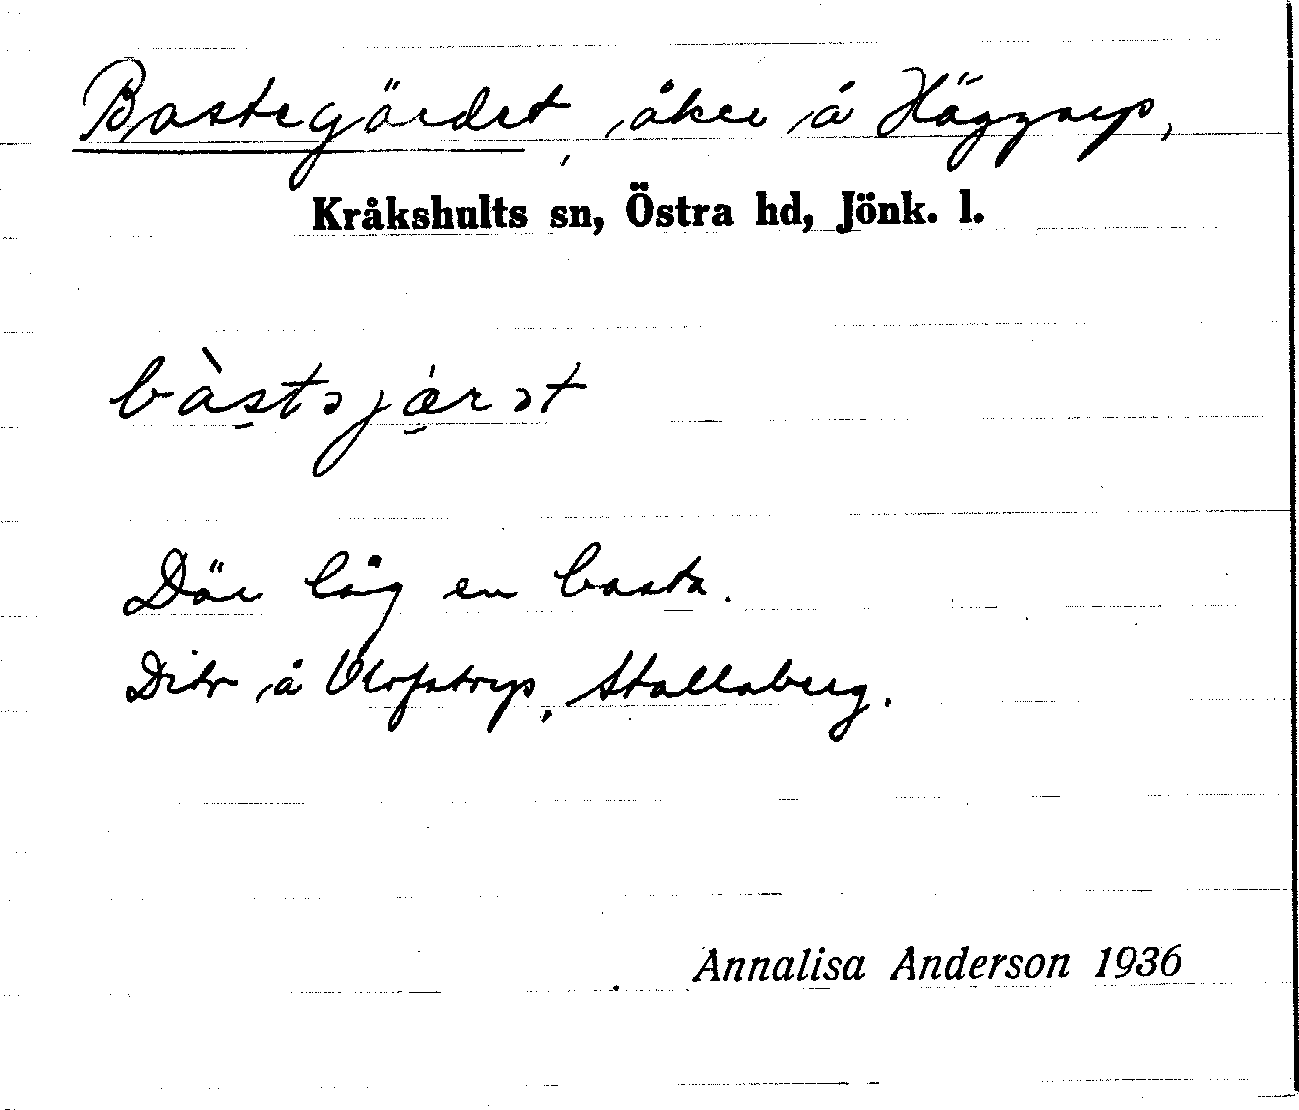 Bastegärdet, åker å Häggarp,
Kråkshults sn, Östra hd, Jönk. l.
bàstəjærət
Där låg en basta.
Dito å Olofstorp, Stallaberg.
Annalisa Anderson 1936